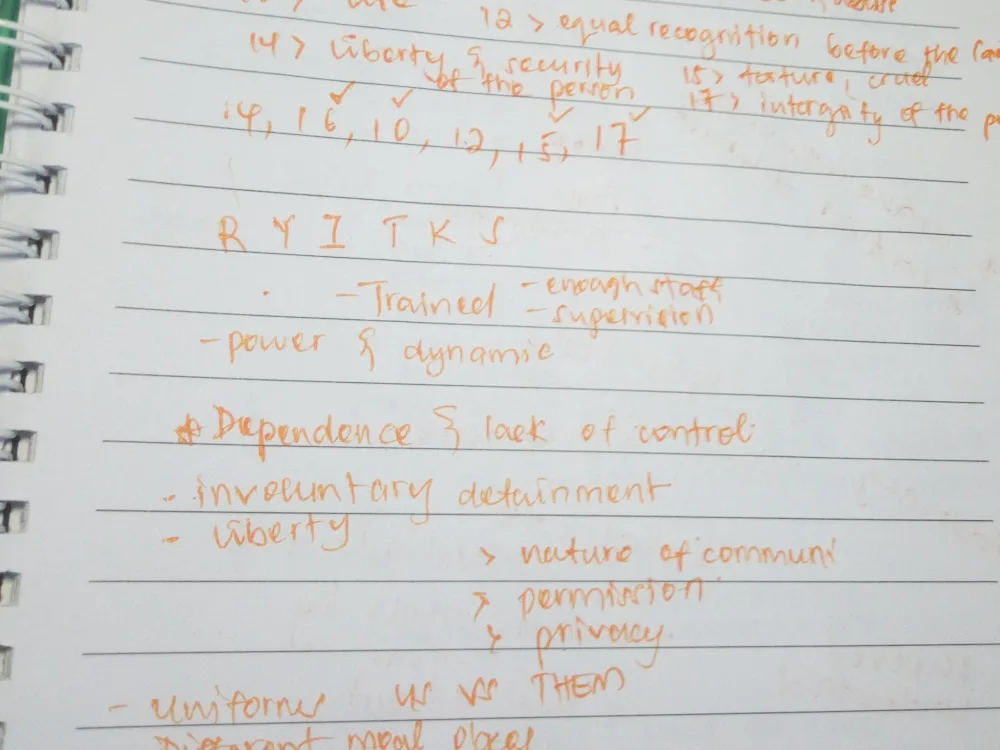 12 > equal recognition before the
14 > liberty & security of the person
15 > torture, cruel
17 > intergrity of the
14, 16, 10, 12, 15, 17
R Y I T K S
- Trained - enough staff
- supervision
- power & dynamic
* Dependence & lack of control
- involuntary detainment
- liberty
> nature of communi
> permission
> privacy
- uniforms us vs THEM
Different meal places